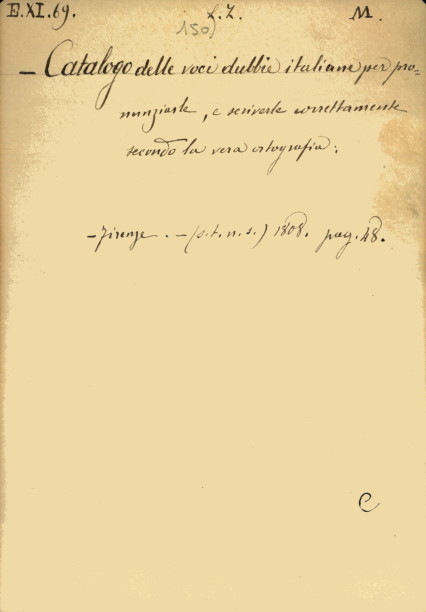 E.XI.69. L.Z. M.
150)
- Catalogo delle voci dubbie italiane per pro=
nunziarle, e scriverle correttamente
secondo la vera ortografia:
- Firenze. - (s.t.n.s.) 1808. pag. 48.
C